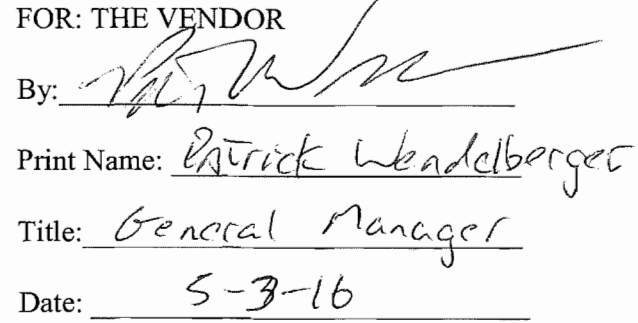 FOR: THE VENDOR
By:
Print Name: Patrick Wendelberger
Title: General Manager
Date: 5-3-16